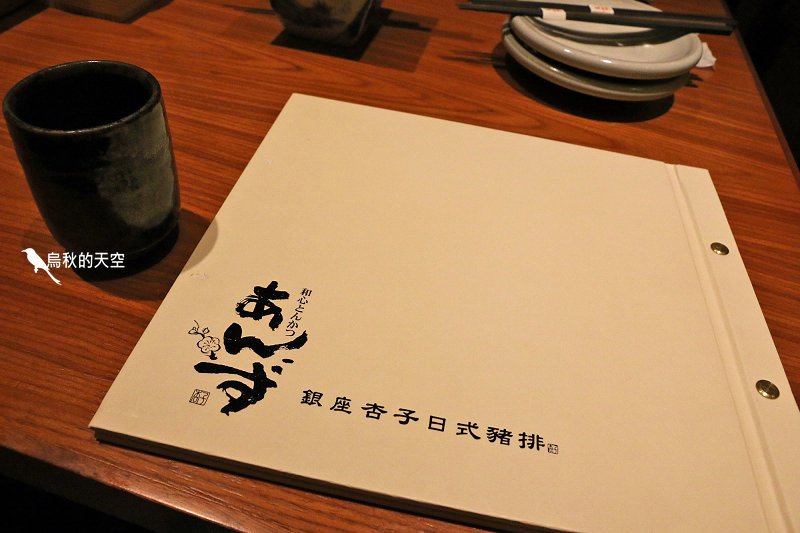 烏秋的天空
和心とんかつ
あんず
銀座杏子日式豬排